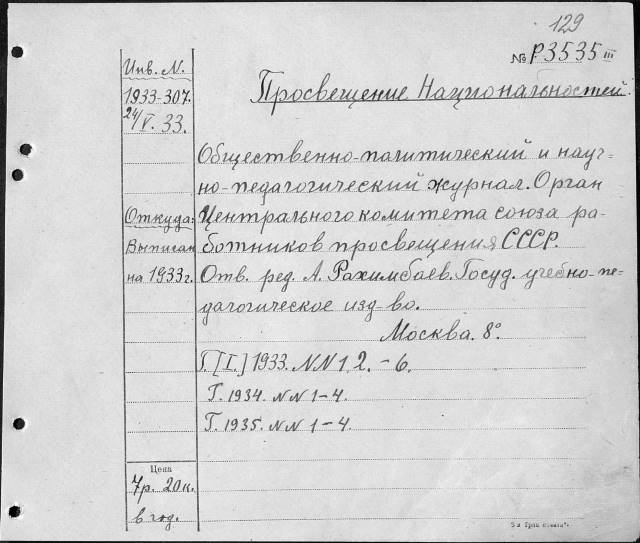 129
№ Р3535 III
Инв. N.
1933-307.
24/V. 33.
Просвещение Национальностей.
Общественно-политический и науч-
но-педагогический журнал. Орган
Откуда:
Центрального комитета союза ра-
Выписан
ботников просвещения СССР.
на 1933г.
Отв. ред. А. Рахимбаев. Госуд. учебно-пе-
дагогическое изд-во.
Москва. 8°.
Г. [I.] 1933. NN 1, 2. - 6.
Г. 1934. NN 1-4.
Г. 1935. NN 1-4.
Цена
7р. 20к.
в год.